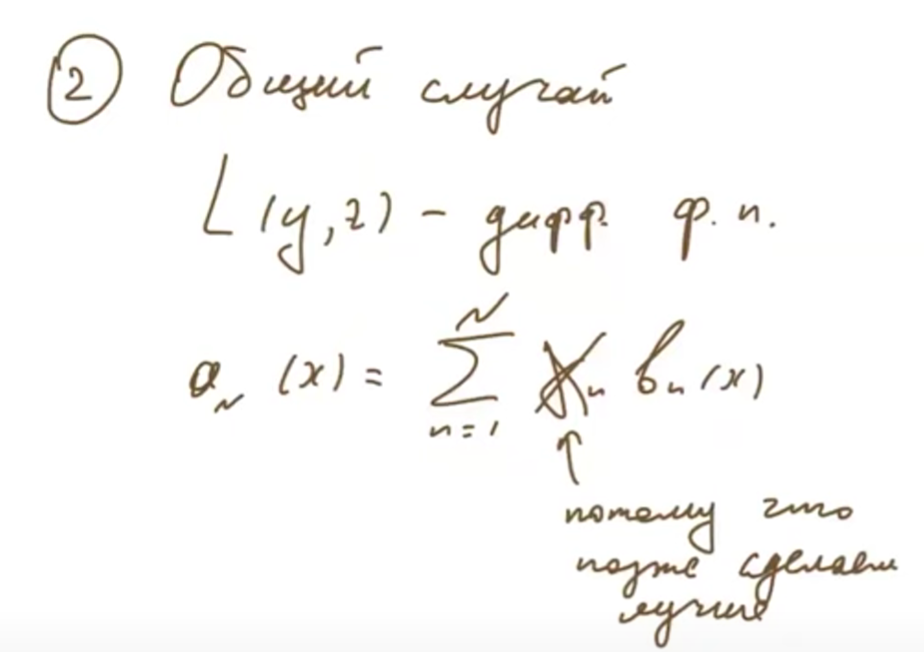 ② Общий случай
L(y, z) - дифф. ф. п.
a_N(x) = \sum_{n=1}^{N} b_n(x)
↑
потому что
позже сделаем
лучше